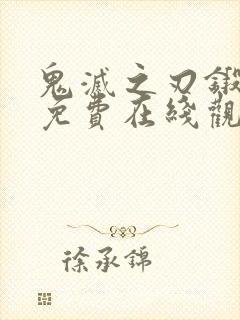 鬼滅之刃鍛
免費在綫觀
徐承錦